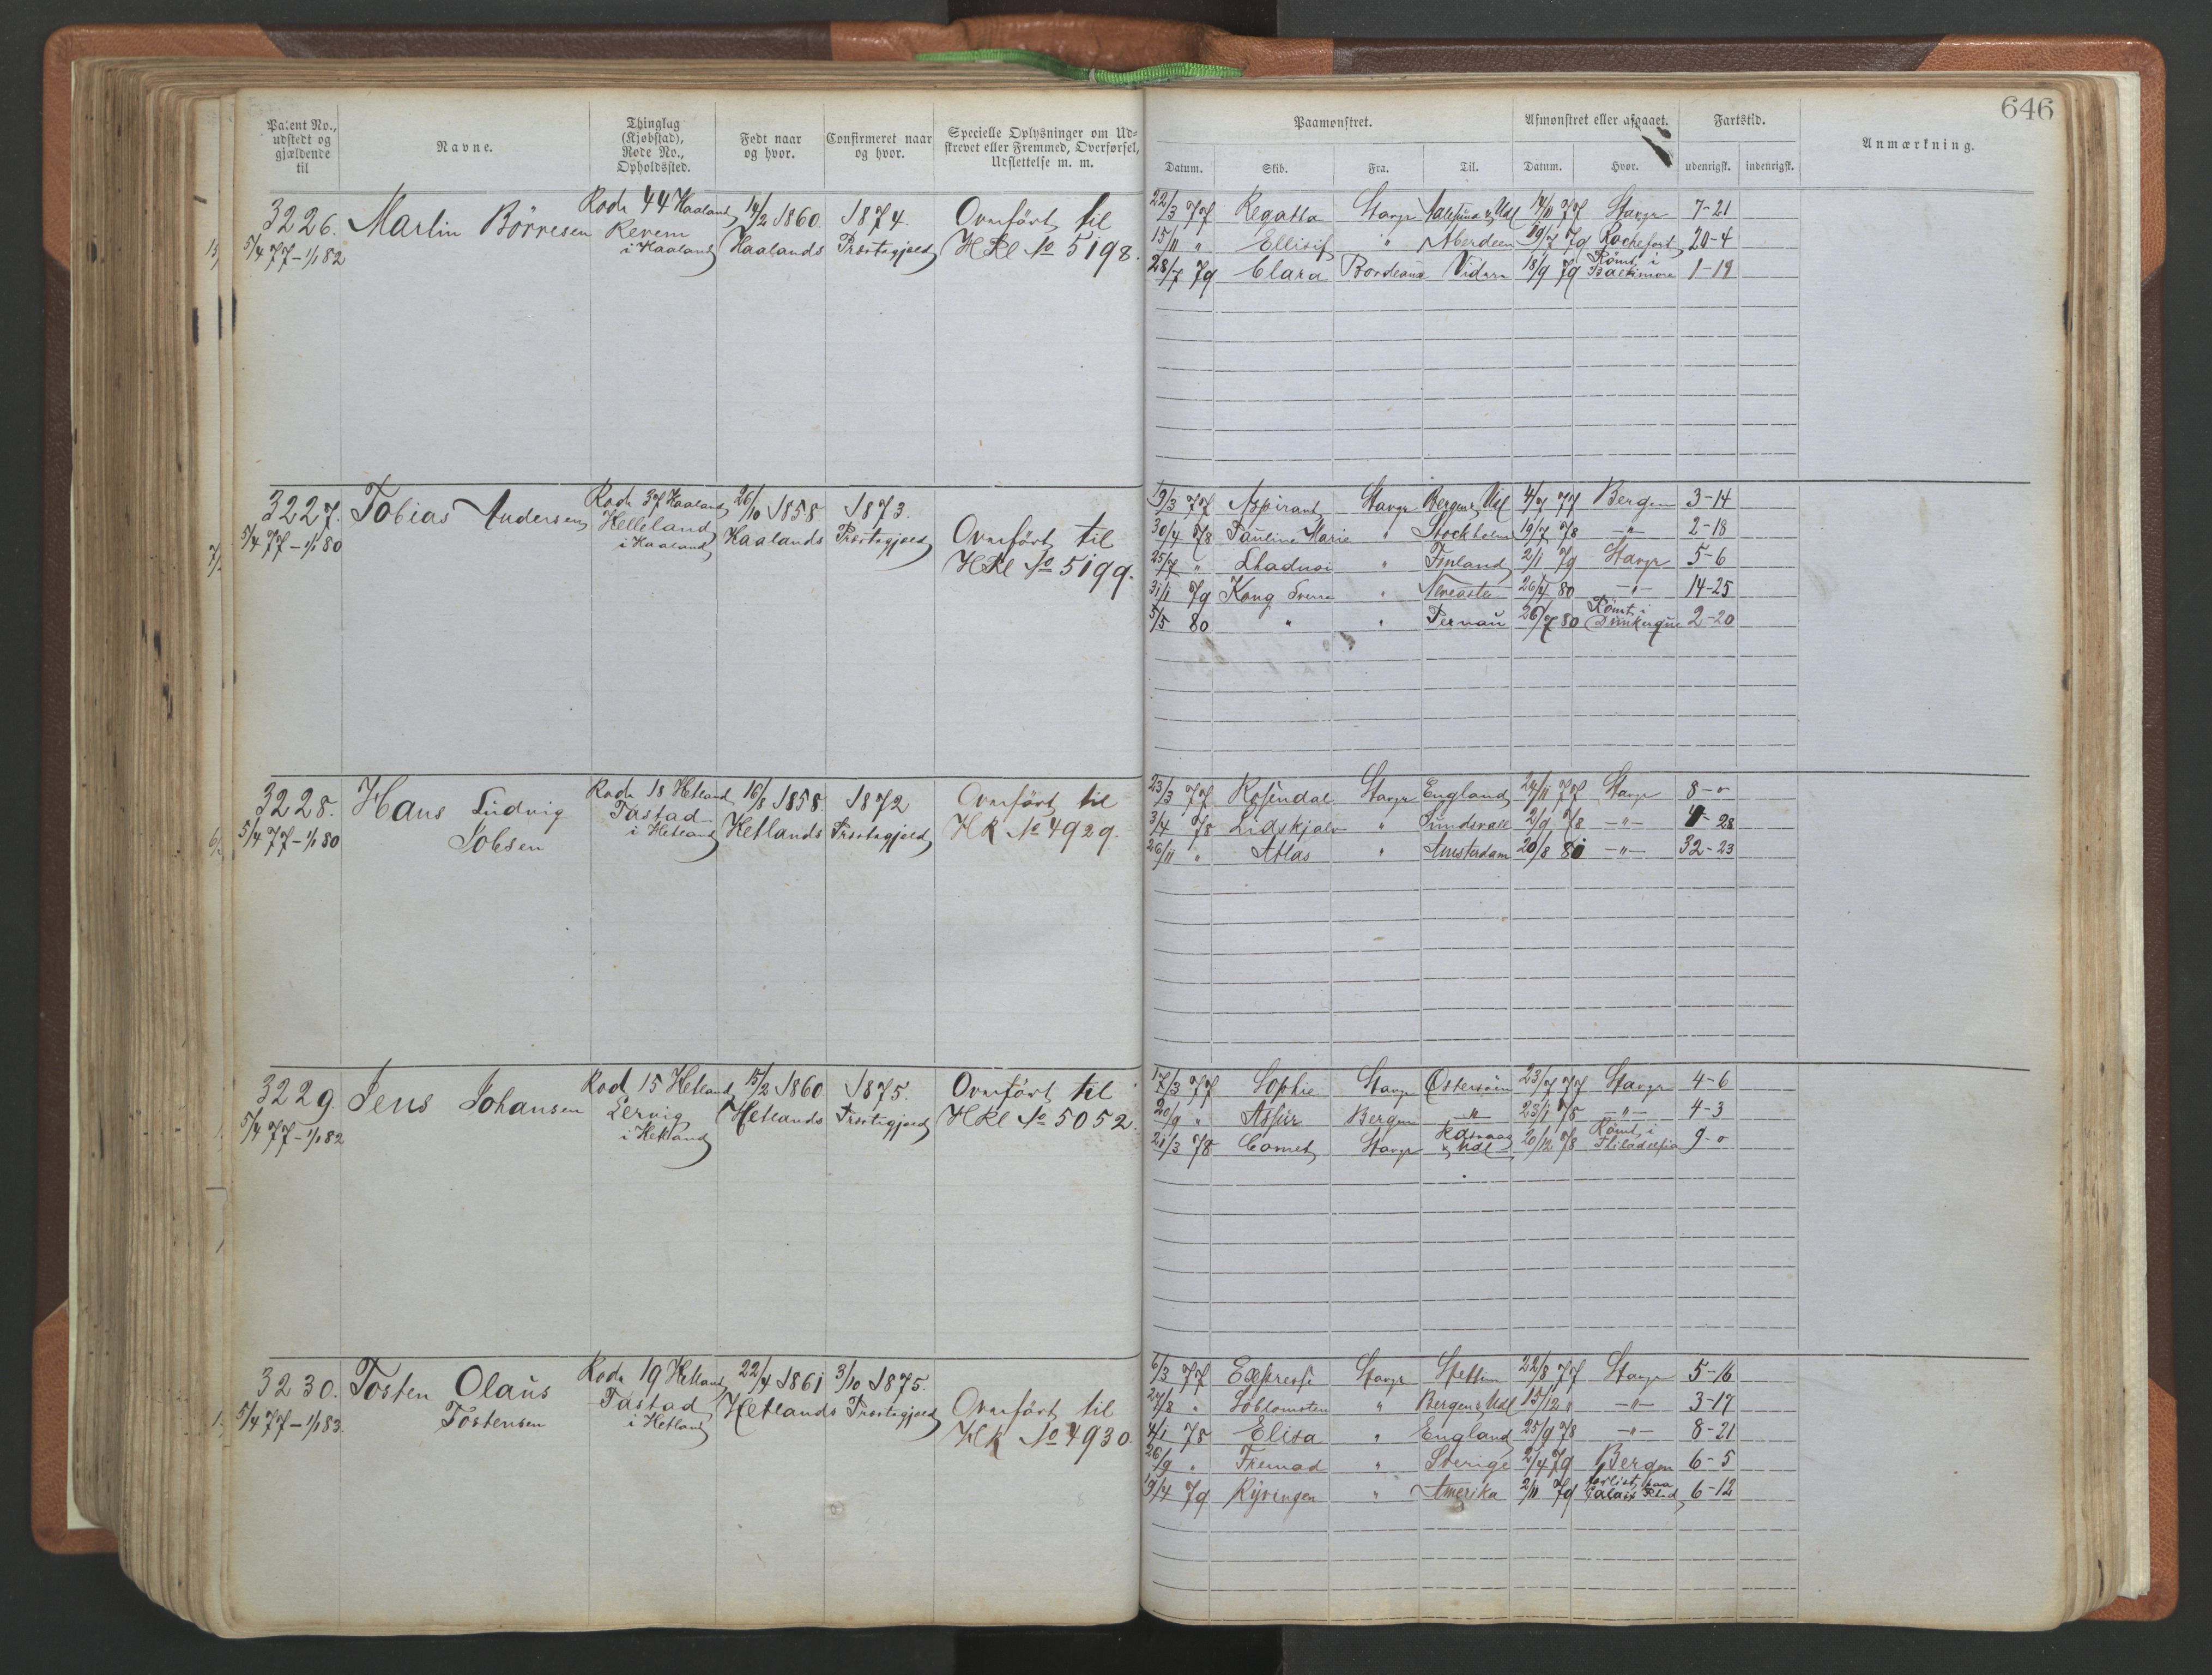 646
Patent No., udstedt og gjældende til
Navne.
Thinglag (Kjøbstad), Rode No., Opholdssted.
Født naar og hvor.
Confirmeret naar og hvor.
Specielle Oplysninger om Udskrevet eller Fremmed, Overførsel, Udslettelse m. m.
Paamønstret.
Afmønstret eller afgaaet.
Fartstid.
Anmærkning.
Datum. Skib. Fra. Til. Datum. Hvor. udenrigsk. indenrigsk.
3226. Martin Börresen Rode 44 Haaland 14/2 1860. 1874. Overfört til
5/4 77 - 1/1 82 Revem i Haaland Haalands Præstegjæld HRl No 5198.
22/3 77 Regatta Stavgr & Udl 14/11 77 Stavgr 7-21
15/11 " Ellisif " Aberdeen 19/7 79 Rochefort 20-4
28/7 79 Clara Bordeaux 18/9 79 Römt i Baltimore 1-19
3227. Tobias Andersen Rode 37 Haaland 26/10 1858 1873. Overfört til
5/4 77 - 1/1 80 Helleland i Haaland Haalands Præstegjæld HRl No 5199.
19/3 77 Aspirant Stavgr Bergen & Udl 4/7 77 Bergen 3-14
30/4 78 Pauline Marie " Stockholm 19/7 78 -"- 2-18
25/7 " " Finland 2/1 79 Stavgr 5-6
31/1 79 Kong Sverre " Newcastle 26/4 80 -"- 14-25
5/5 80 " " Pernau 26/7 80 Römt i Dunkerque 2-20
3228. Hans Ludvig Rode 18 Hetland 16/8 1858 1872 Overfört til
5/4 77 - 1/1 80 Jobsen Tastad i Hetland Hetlands Præstegjæld HR No 4929.
23/3 77 Rosendal Stavgr England 24/11 77 Stavgr 8-0
3/4 78 Lidskjalv " Sundsvall 2/9 78 -"- 4-28
26/11 " Atlas " Amsterdam 20/8 80 -"- 32-23
3229. Jens Johansen Rode 15 Hetland 15/2 1860 1875. Overfört til
5/4 77 - 1/1 82 Lervig i Hetland Hetlands Præstegjæld HRl No 5052.
17/3 77 Sophie Stavgr Östersöen 23/7 77 Stavgr 4-6
20/9 " Assur Bergen " 23/1 78 -"- 4-3
21/3 78 Comet Stavgr & Udl 20/12 78 Römt i Philadelfia 9-0
3230. Tosten Olaus Rode 19 Hetland 22/4 1861 3/10 1875.
5/4 77 - 1/1 83. Tostensen Tastad i Hetland Hetlands Præstegjæld Overfört til HR No 4930.
6/3 77 Express Stavgr Stettin 22/8 77 Stavgr 5-16
27/8 " Söblomsten " Bergen & Udl 15/12 " -"- 3-17
4/1 78 Elisa " England 25/9 78 -"- 8-21
26/9 " Fremad " Sverige 2/4 79 Bergen 6-5
19/4 79 Ryvingen " Amerika 2/11 79 forlist paa 6-12